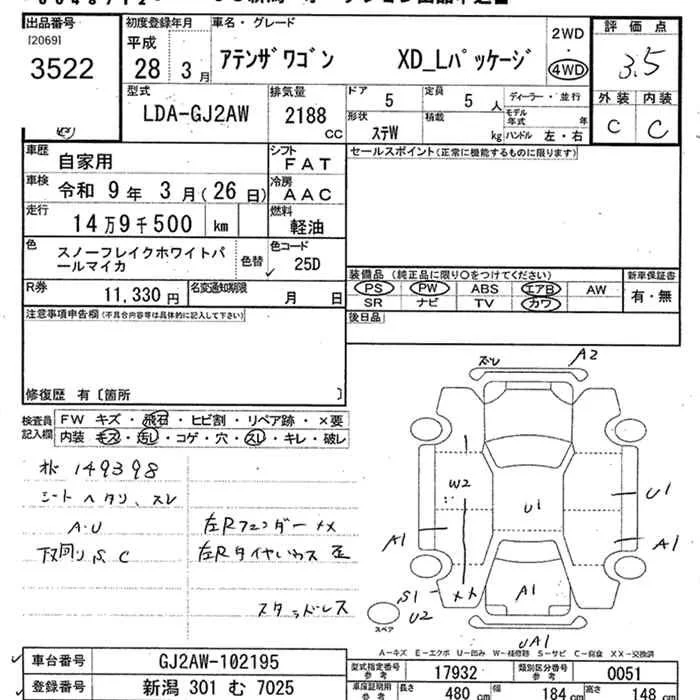 出品番号
[2069]
3522
初度登録年月
平成
28 3月
車名・グレード
アテンザワゴン XD_Lパッケージ
2WD
・
4WD
評価点
3.5
外装 内装
C C
型式
LDA-GJ2AW
排気量
2188
CC
ドア
5
定員
5 人
ディーラー・並行
形状
ステW
積載
kg
モデル年式
年
ハンドル 左・右
車歴
自家用
シフト
FAT
セールスポイント(正常に機能するものに限ります)
車検
令和 9年 3月(26日)
冷房
AAC
走行
14万9千500 km
燃料
軽油
色
スノーフレイクホワイトパールマイカ
色替
色コード
25D
R券
11,330 円
名変通知期限
月 日
装備品 (純正品に限り○をつけてください)
PS PW ABS エアB AW
SR ナビ TV カワ
新車保証書
有・無
後日品
注意事項申告欄(不具合内容等は具体的に記入して下さい)
修復歴 有〔箇所 〕
検査員記入欄
FW キズ・飛石・ヒビ割・リペア跡・×要
内装 モス・汚レ・コゲ・穴・スレ・キレ・破レ
149398
シートヘタリ、スレ
A・U
下回りS C
左Rフェンダー XX
左Rタイヤハウス
スタッドレス
ズレ A2
W2
U1
U1
A1
A1
S1
XX
A1
U2
スペア
UA1
A―キズ E―エクボ U―凹み W―補修跡 S―サビ C―腐食 XX―交換済
車台番号
GJ2AW-102195
登録番号
新潟 301 む 7025
型式指定番号
参考
17932
類別区分番号
参考
0051
車庫証明用
参考
長さ
480 cm
幅
184 cm
高さ
148 cm